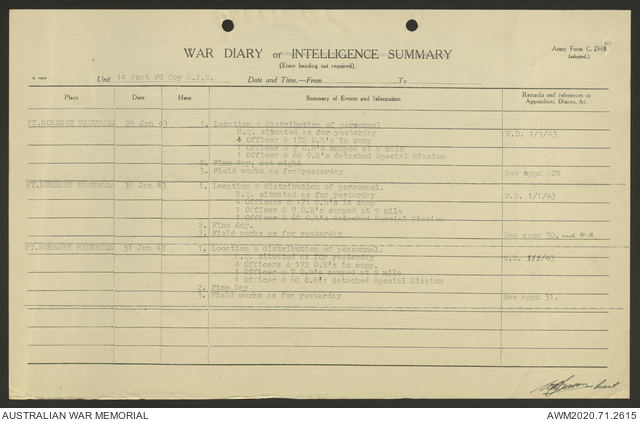 WAR DIARY or INTELLIGENCE SUMMARY
(Erase heading not required).
Army Form C. 2118
(adapted.)
Unit 14 Aust Fd Coy R.A.E. Date and Time.—From To
Place Date Hour Summary of Events and Information Remarks and references to Appendices, Diaries, &c.
PT.MORESBY HANUBADA 29 Jan 43 1. Location & distribution of personnel
H.Q. situated as for yesterday W.D. 1/1/43
4 Officer & 172 O.R's in camp
1 Officer & 7 O.R's camped at 9 mile
1 Officer & 60 O.R's detached Special Mission
2. Fine day, wet night
3. Field works as for yesterday See appx 29
PT.MORESBY HANUBADA 30 Jan 43 1. Location & distribution of personnel.
H.Q. situated as for yesterday W.D. 1/1/43
4 Officers & 171 O.R's in camp
1 Officer & 7 O.R's camped at 9 mile
1 Officer & 60 O.R's detached Special Mission
2. Fine day.
3. Field works as for yesterday See appx 30. and 4-A
PT.MORESBY HANUBADA 31 Jan 43 1. Location & distribution of personnel.
H.Q. situated as for yesterday W.D. 1/1/43
4 Officers & 172 O.R's in camp.
1 Officer & 7 O.R's camped at 9 mile
1 Officer & 60 O.R's detached Special Mission
2. Fine Day
3. Field works as for yesterday See appx 31.
Lieut
AUSTRALIAN WAR MEMORIAL AWM2020.71.2615